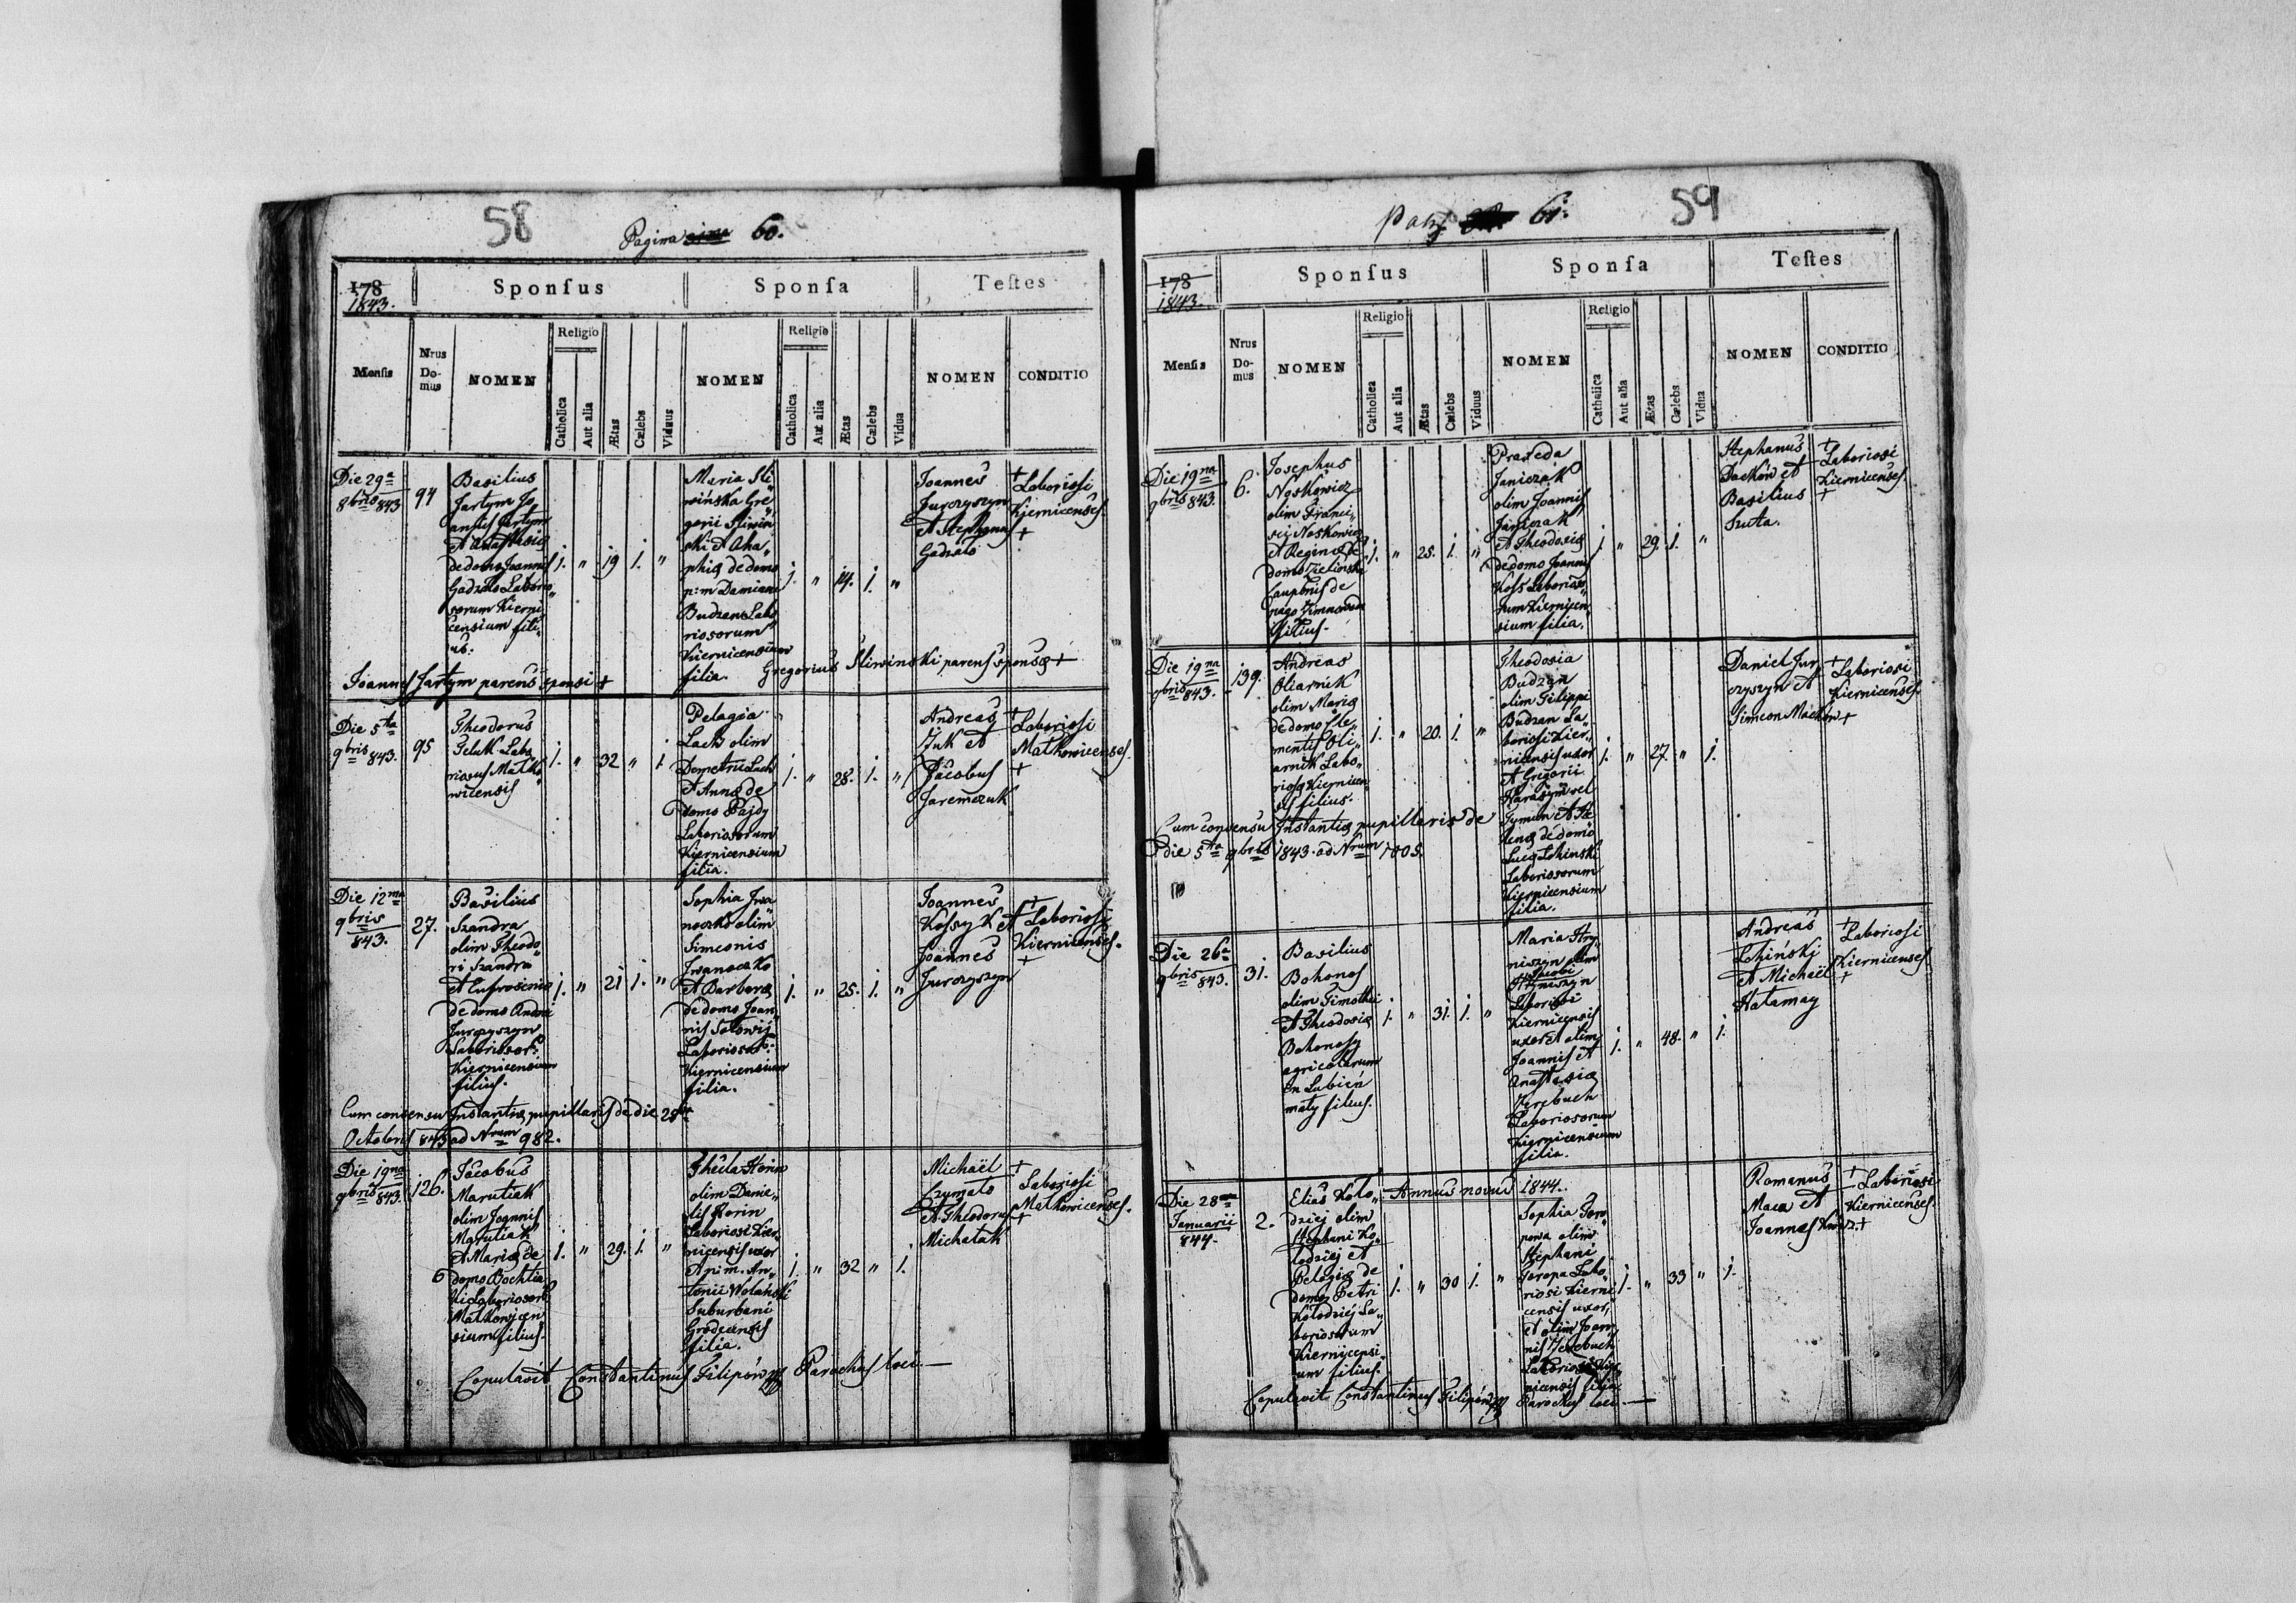 58
Pagina 60.
178
1843.
Sponſus
Sponſa
Teſtes
Menſis
Nrus Do-mus
NOMEN
Religio
Catholica
Aut alia
Ætas
Cælebs
Viduus
NOMEN
Religio
Catholica
Aut alia
Ætas
Cælebs
Vidua
NOMEN
CONDITIO
Die 29a
8bris 843
94
Basilius
Jartym Jo
annis Jartym
et Anastasiæ
de domo Joannis
Gadzało Laborio„
sorum Kierni„
censium fili„
us.
1. „ 19 1. „
Maria Sli
wińska Gre„
gorii Sliwin„
ski et Aha„
phiæ de domo
p:m Damiani
Budzan Labo
riosorum
Kiernicensium
filia.
1. „ 14. 1. „
Joannes
Jurczyszyn
et Stephanus
Gadzało
+ Laboriosi
Kiernicenses.
+
Joannes Jartym parens sponsi +
Gregorius Sliwinski parens sponsæ +
Die 5ta
9bris 843.
95
Theodorus
Feluk Labo
riosus Malko„
wicensis
1. „ 32 „ 1.
Pelagia
Lach olim
Demetrii Lach
et Annæ de
domo Pajdy
Laboriosorum
Kiernicensium
filia.
1. „ 28. 1. „
Andreas
Juk et
Jacobus
Jaremczuk
+ Laboriosi
Malkowicenses.
+
Die 12ma
9bris
843.
27.
Basilius
Szandra
olim Theodo„
ri Szandra
et Eufrosinæ
de domo Andreæ
Jurczyszyn
Laboriosor:
Kiernicensium
filius.
1. „ 21 1. „
Sophia Iwa
noczko olim
Simeonis
Iwanoczko
et Barbaræ
de domo Joan„
nis Sołowij
Laboriosor:
Kiernicensium
filia.
1. „ 25. 1. „
Joannes
Kossyk et
Joannes
Jurczyszyn
+ Laboriosi
Kiernicenses.
+
Cum consensu Instantiæ pupillaris de die 28va
Octobris 843 ad Nrum 982.
Die 19na
9bris 843.
126.
Jacobus
Marutiak
olim Joannis
Marutiak
et Mariæ de
domo Bochtia
Laboriosor:
Malkowicen„
sium filius.
1. „ 29. 1. „
Thecla Horin
olim Danie„
lis Horin
Laboriosi Kier„
nicensis uxor
et p:m. An„
tonii Wolański
Suburbani
Grodecensis
filia.
1. „ 32 „ 1.
Michaël
Czymało
et Theodorus
Michalak
+ Laboriosi
Malkowicenses.
+
Copulavit Constantinus Filipów Parochus loci.—
59
Pag 61.
178
1843.
Sponſus
Sponſa
Teſtes
Menſis
Nrus Do-mus
NOMEN
Religio
Catholica
Aut alia
Ætas
Cælebs
Viduus
NOMEN
Religio
Catholica
Aut alia
Ætas
Cælebs
Vidua
NOMEN
CONDITIO
Die 19na
9bris 843.
6.
Josephus
Noskowicz
olim Franci„
sci Noskowicz
et Reginæ de
domo Zielinska
de
pago Zimnawoda
filius.
1. „ 25. 1. „
Praxeda
Janiczak
olim Joannis
Janiczak
et Theodosiæ
de domo Joannis
Koss Laborioso„
rum Kiernicen„
sium filia.
1. „ 29. 1. „
Stephanus
Packon et
Basilius
Szuta.
+ Laboriosi
Kiernicenses.
+
Die 19na
9bris 843.
139.
Andreas
Oliarnik
olim Mariæ
de domo Cle„
mentis Oli„
arnik Labo„
riosæ Kiernicen„
sis filius.
1. „ 20. 1. „
Theodosia
Budzan
olim Filippi
Budzan La„
boriosi Kier„
nicensis uxor
et Gregorii
Harasym vel
Tymun et He
lenæ de domo
Lucæ Lchinski
Laboriosorum
Kiernicensium
filia.
1. „ 27. „ 1.
Daniel Jur
czyszyn et
Simeon Mackow
+ Laboriosi
Kiernicenses.
+
Cum consensu Instantiæ pupillaris de
die 5ta 9bris 1843. ad Nrum 1005.
Die 26a
9bris 843.
31.
Basilius
Bohonos
olim Timothei
et Theodosiæ
Bohonosy
agricolarum
in Lubień
mały filius.
1. „ 31. 1. „
Maria Hry„
niszyn olim
Jacobi
Hryniszyn
Laboriosi
Kiernicensis
uxor et olim
Joannis et
Anastasiæ
Jerebuch
Laboriosorum
Kiernicensium
filia.
1. „ 48. „ 1.
Andreas
Lchiński
et Michaël
Hałamay
+ Laboriosi
Kiernicenses
+
Annus novus 1844.
Die 28va
Januarii
844.
2.
Elias Koło„
dziej olim
Stephani Ko„
łodziej et
Pelagiæ de
domo Petri
Kołodziej La„
boriosorum
Kiernicensi„
um filius.
1. „ 30 1. „
Sophia
olim
Stephani
Labo„
riosi Kierni
censis uxor,
et olim Joan„
nis Jerebuch
Laboriosi Kier„
nicensis filia.
1. „ 33 „ 1.
Romanus
Maca et
Joannes +
+ Laboriosi
Kiernicenses.
Copulavit Constantinus Filipów Parochus loci.—